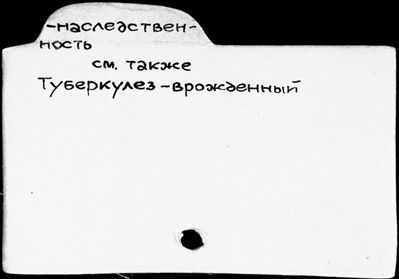 -наследствен-
ность
см. также
Туберкулез-врожденный